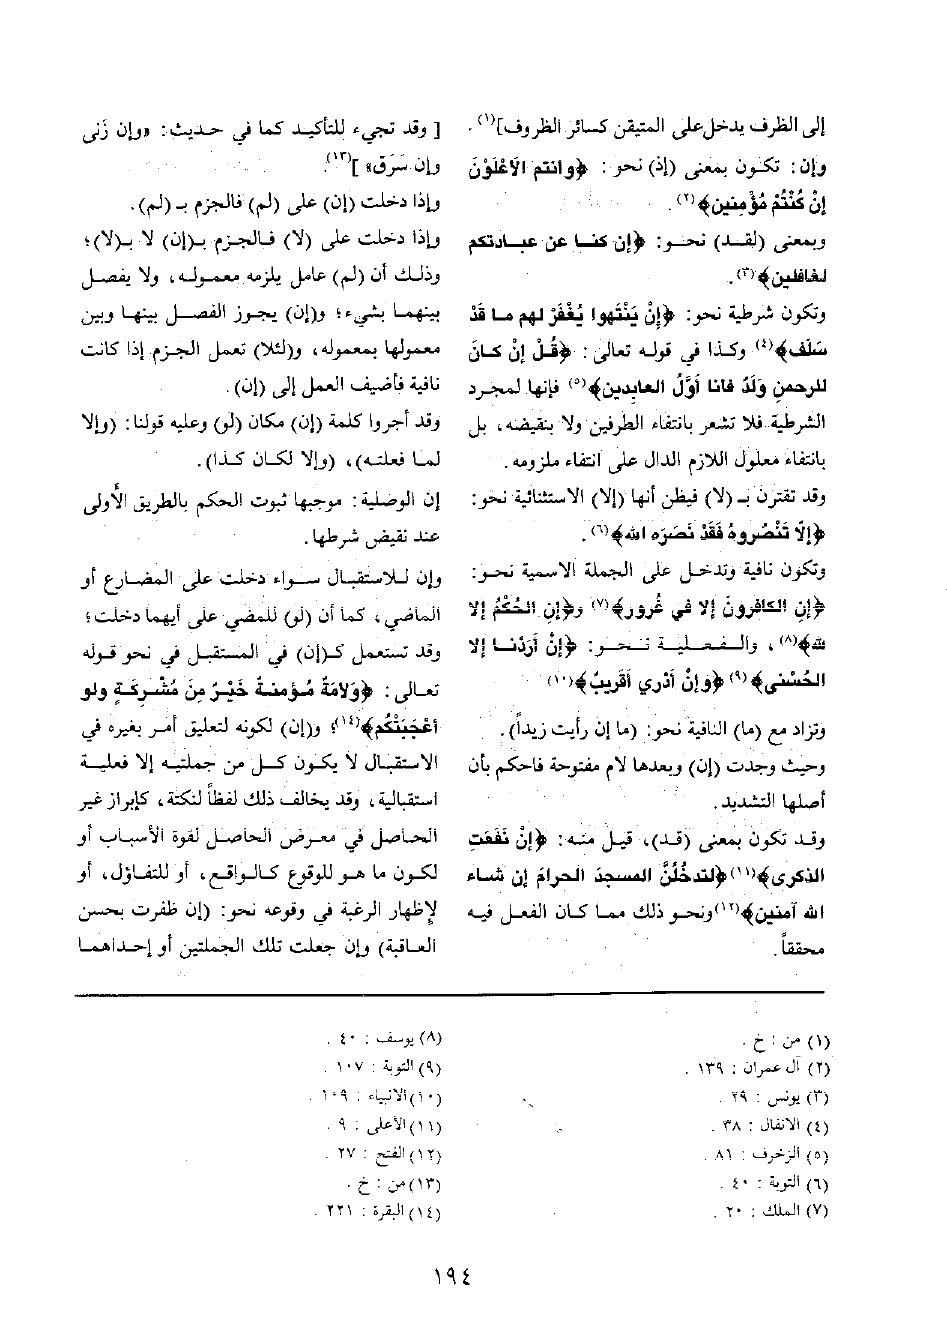 إلى الظرف يدخل على المتيقن كسائر الظروف](١).
وإن: تكون بمعنى (إذ) نحو: ﴿وأنتم الأعْلَوْنَ
إنْ كُنْتُمْ مُؤْمِنين﴾(٢).
وبمعنى (لقد) نحو: ﴿إن كنا عن عبادتكم
لغافلين﴾(٣).
وتكون شرطية نحو: ﴿إنْ يَنْتَهوا يُغْفَرْ لهم ما قَدْ
سَلَف﴾(٤) وكذا في قوله تعالى: ﴿قُلْ إنْ كانَ
للرحمنِ وَلَدٌ فأنا أوَّلُ العابِدين﴾(٥) فإنها لمجرد
الشرطية فلا تشعر بانتفاء الطرفين ولا بنقيضه، بل
بانتفاء معلول اللازم الدال على انتفاء ملزومه.
وقد تقترن بـ (لا) فيظن أنها (إلا) الاستثنائية نحو:
﴿إلّا تَنْصُروهُ فَقَدْ نَصَرَه الله﴾(٦).
وتكون نافية وتدخل على الجملة الاسمية نحو:
﴿إنِ الكافرونَ إلا في غُرور﴾(٧) و﴿إنِ الحُكْمُ إلا
لله﴾(٨)، والفعلية نحو: ﴿إنْ أرَدْنا إلا
الحُسْنى﴾(٩) ﴿وإنْ أدْري أقَريبٌ﴾(١٠)
وتزاد مع (ما) النافية نحو: (ما إن رأيت زيداً).
وحيث وجدت (إن) وبعدها لام مفتوحة فاحكم بأن
أصلها التشديد.
وقد تكون بمعنى (قد)، قيل منه: ﴿إنْ نَفَعَتِ
الذكرى﴾(١١) ﴿لتدخُلُنَّ المسجدَ الحرامَ إن شاء
الله آمنين﴾(١٢) ونحو ذلك مما كان الفعل فيه
محققاً.
[ وقد تجيء للتأكيد كما في حديث: «وإن زَنى
وإن سَرَق» ](١٣).
وإذا دخلت (إن) على (لم) فالجزم بـ (لم).
وإذا دخلت على (لا) فالجزم بـ(إن) لا بـ(لا)؛
وذلك أن (لم) عامل يلزمه معموله، ولا يفصل
بينهما بشيء؛ و(إن) يجوز الفصل بينها وبين
معمولها بمعموله، و(لئلا) تعمل الجزم إذا كانت
نافية فأضيف العمل إلى (إن).
وقد أجروا كلمة (إن) مكان (لو) وعليه قولنا: (وإلا
لما فعلته)، (وإلا لكان كذا).
إن الوصلية: موجبها ثبوت الحكم بالطريق الأولى
عند نقيض شرطها.
وإن للاستقبال سواء دخلت على المضارع أو
الماضي، كما أن (لو) للمضي على أيهما دخلت؛
وقد تستعمل كـ(إن) في المستقبل في نحو قوله
تعالى: ﴿وَلأمَةٌ مُؤمنةٌ خَيْرٌ مِنْ مُشْرِكَةٍ ولو
أعْجَبَتْكُم﴾(١٤)؛ و(إن) لكونه لتعليق أمر بغيره في
الاستقبال لا يكون كل من جملتيه إلا فعلية
استقبالية، وقد يخالف ذلك لفظاً لنكتة، كإبراز غير
الحاصل في معرض الحاصل لقوة الأسباب أو
لكون ما هو للوقوع كالواقع، أو للتفاؤل، أو
لإظهار الرغبة في وقوعه نحو: (إن ظفرت بحسن
العاقبة) وإن جعلت تلك الجملتين أو إحداهما
(١) من : خ .
(٢) آل عمران : ١٣٩ .
(٣) يونس : ٢٩ .
(٤) الانفال : ٣٨ .
(٥) الزخرف : ٨١ .
(٦) التوبة : ٤٠ .
(٧) الملك : ٢٠ .
(٨) يوسف : ٤٠ .
(٩) التوبة : ١٠٧ .
(١٠) الانبياء : ١٠٩ .
(١١) الأعلى : ٩ .
(١٢) الفتح : ٢٧ .
(١٣) من : خ .
(١٤) البقرة : ٢٢١ .
١٩٤